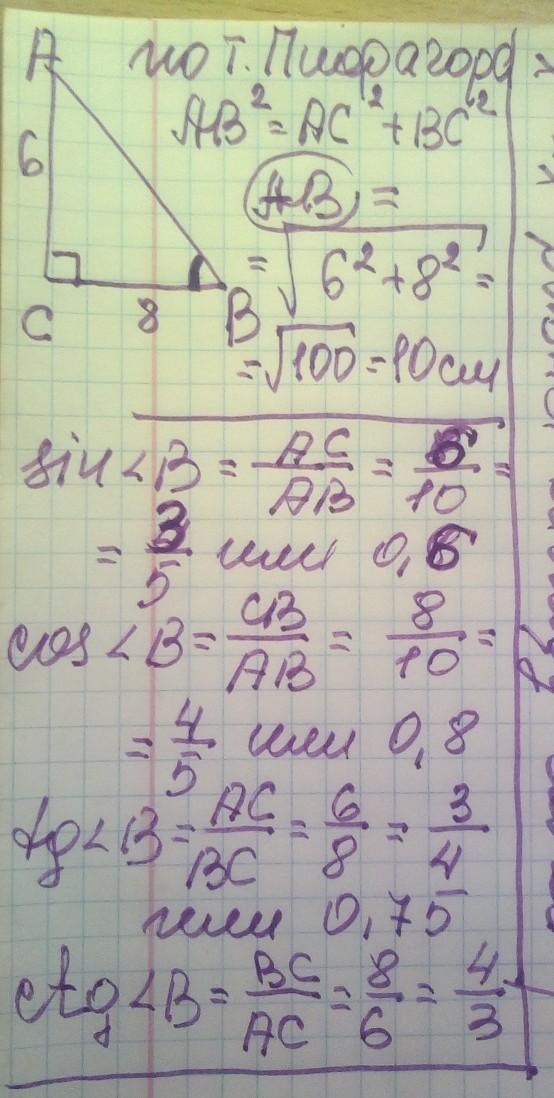 A по т. Пифагора
AB² = AC² + BC²
6
AB =
= √6² + 8² =
C 8 B
= √100 = 10 см
sin <B = AC/AB = 6/10 =
= 3/5 или 0,6
cos <B = CB/AB = 8/10 =
= 4/5 или 0,8
tg <B = AC/BC = 6/8 = 3/4
или 0,75
ctg <B = BC/AC = 8/6 = 4/3